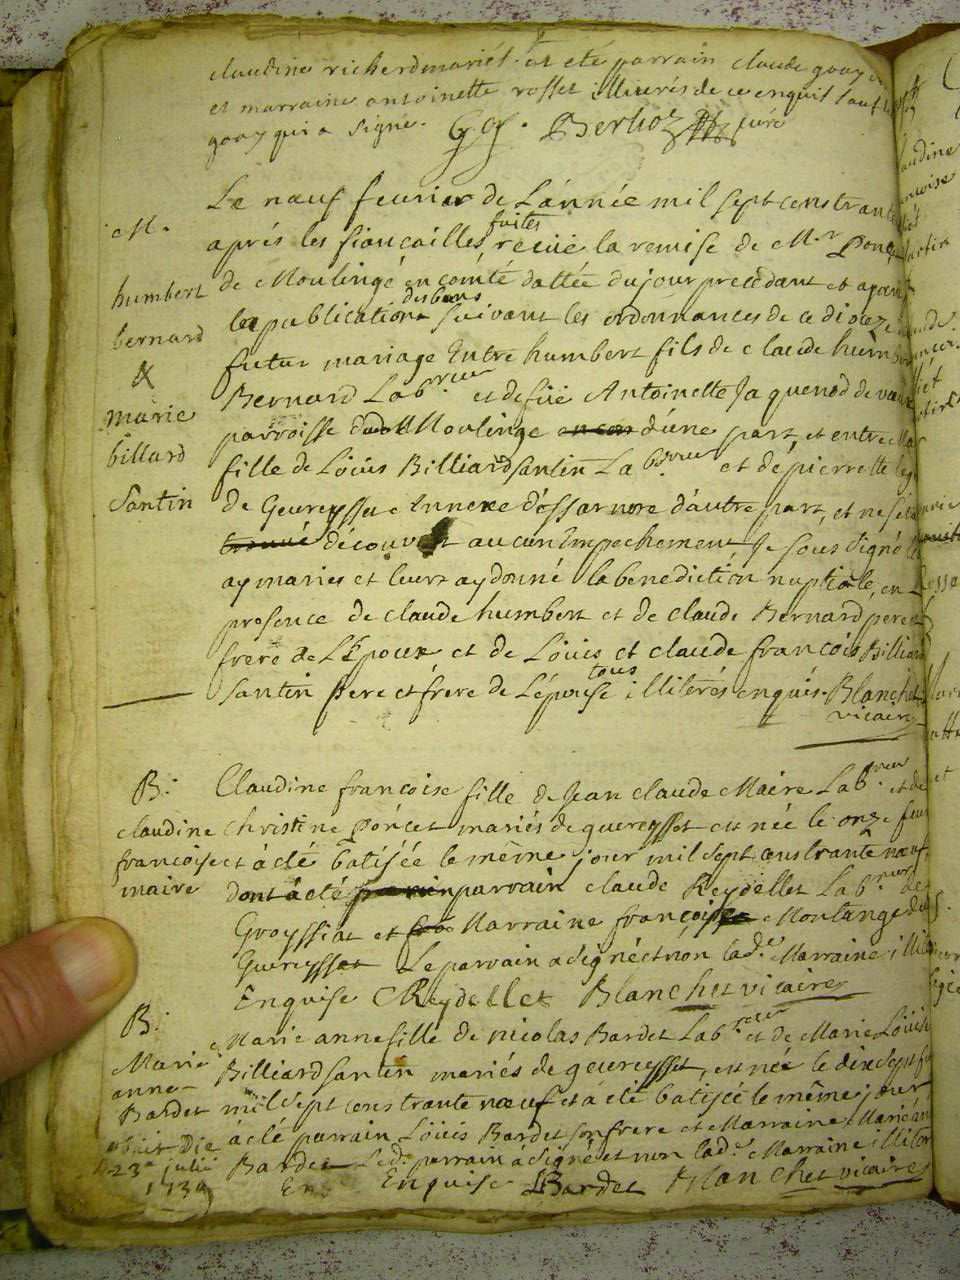 claudine richerd mariés. at eté parrain claude gouy
et marraine antoinette rosset illiterés de ce enquit sauf
gouy qui a signé. Berlioz curé
M.
humbert
bernard
&
marie
billard
Santin
Le nœuf feuvrier de L'année mil sept cens trante
aprés les fiancailles faites recüe la remise de Mr Ponc
de Moulingé en comté dattée du jour precédant et apres
les publications des bans suivant les ordonnances de ce dioceze
futur mariage Entre humbert fils de claude humbert
Bernard Labreur et de füe Antoinette Jaquenod de
parroisse de Moulinge d'une part, et entre Mar
fille de Loüis Billiard santin Laboreur et de pierrette
de Geureysset annexe d'essarnore d'autre part, et ne s'et
trouvé découvert aucun Empechement Je sous signé
ay mariés et leurs ay donné la benediction nuptiale, en
presence de claude humbert et de claude Bernard pere et
frere de L'Epoux et de Loüis et claude françois Billiard
Santin pere et frere de L'épouse tous illiterés enquis. Blanchet
vicaire
B:
claudine
francoise
maire
Claudine francoise fille de Jean claude Maire Labreur et de
christine Poncet mariés de guereysset est née le onze feuv
et à été batisée le même jour mil sept cens trante nœuf,
dont à été parrain claude Reydellet Labreur de
Groyssiat et Marraine françoise Montange du
Guereysset Le parrain a signé et non lade Marraine illit
Enquise CReydellet Blanchet vicaire
B:
Marie
anne
Bardet
obiit Die
23a julii
1739
Marie anne fille de nicolas Bardet Labreur et de Marie Loüise
Billiard santin mariés de geureysset, est née le dix sept f
mil sept cens trante nœuf et a été batisée le même jour,
à été parrain Loüis Bardet son frere et Marraine Marie an
Bardet Led. parrain à signé et non lade Marraine illiter
Enquise LBardet Blanchet vicaire